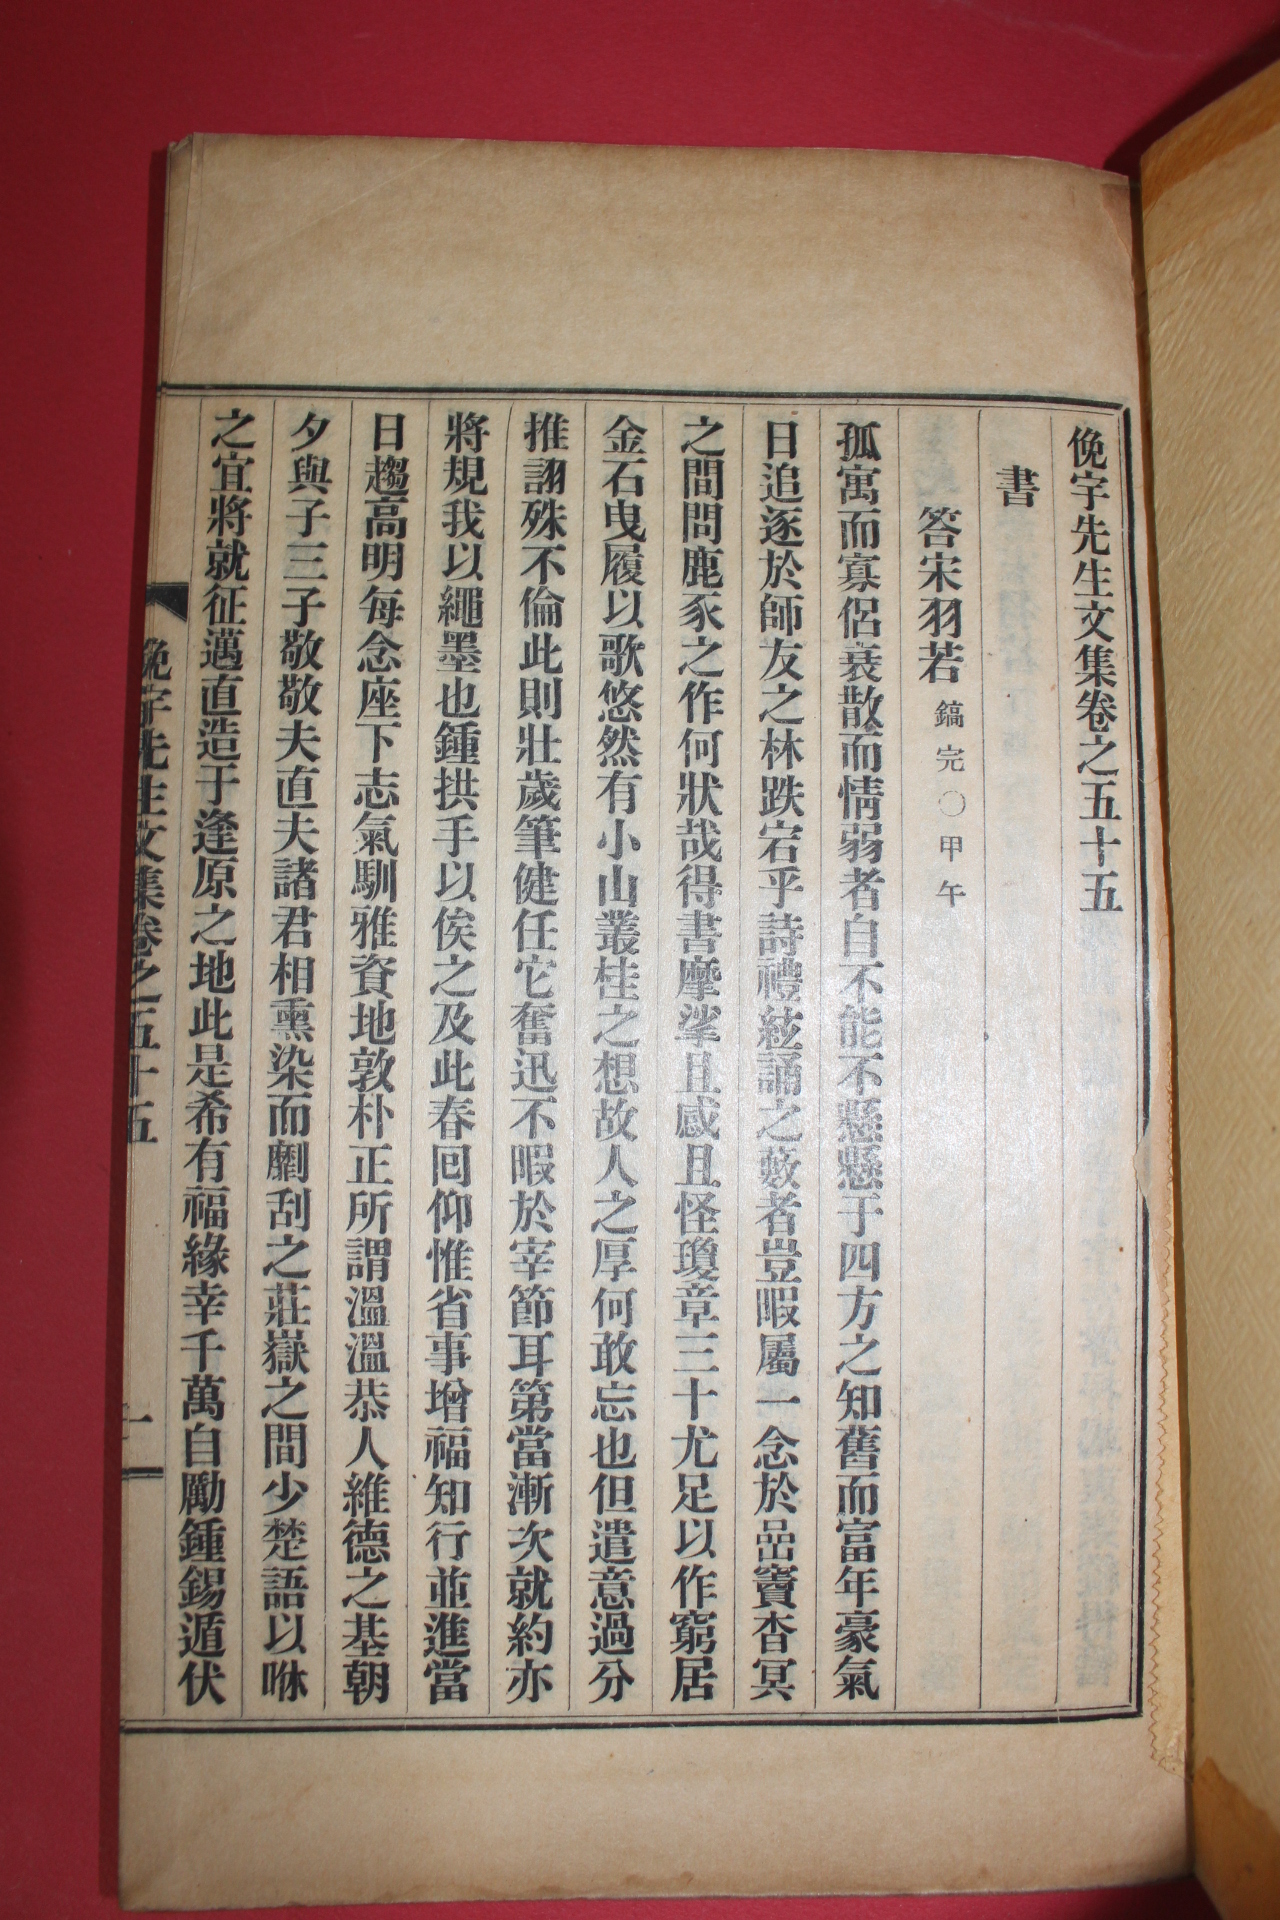 俛宇先生文集卷之五十五
書
答宋羽若鎬完〇甲午
孤寓而寡侶衰散而情弱者自不能不懸懸于四方之知舊而富年豪氣
日追逐於師友之林跌宕乎詩禮絃誦之藪者豈暇屬一念於嵒竇杳冥
之間問鹿豕之作何狀哉得書摩挲且感且怪瓊章三十尤足以作窮居
金石曳履以歌悠然有小山叢桂之想故人之厚何敢忘也但遣意過分
推詡殊不倫此則壯歲筆健任它奮迅不暇於宰節耳第當漸次就約亦
將規我以繩墨也鍾拱手以俟之及此春回仰惟省事增福知行並進當
日趨高明每念座下志氣馴雅資地敦朴正所謂溫溫恭人維德之基朝
夕與子三子敬敬夫直夫諸君相熏染而劘刮之莊嶽之間少楚語以咻
之宜將就征邁直造于逢原之地此是希有福緣幸千萬自勵鍾錫遁伏
俛宇先生文集卷之五十五
一